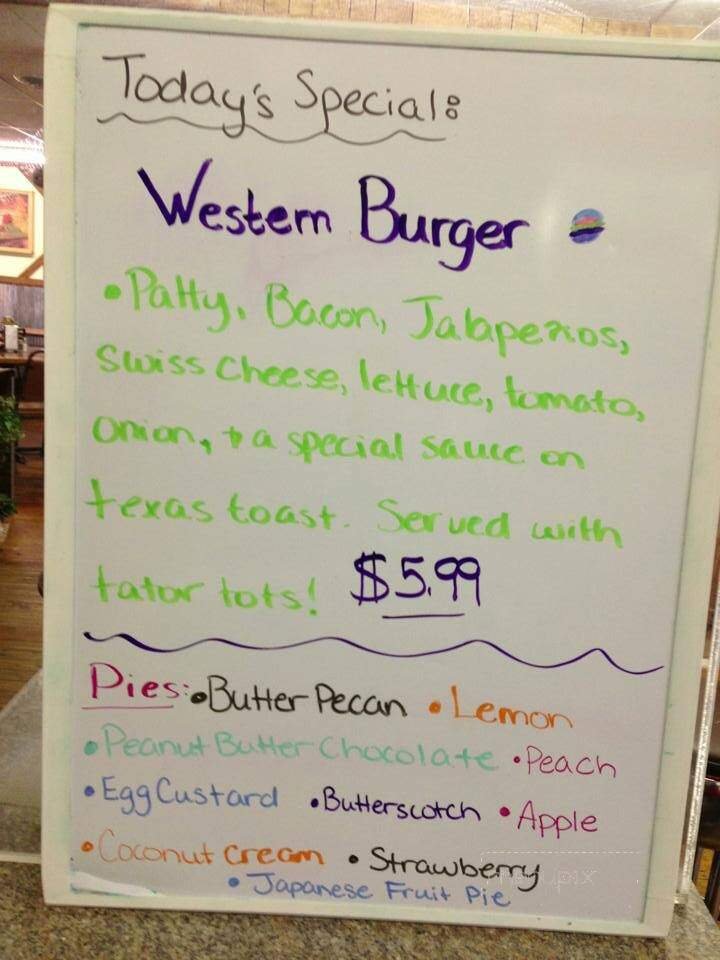 Today's Special:
Western Burger
• Patty, Bacon, Jalapeños,
Swiss cheese, lettuce, tomato,
onion, + a special sauce on
texas toast. Served with
tator tots! $5.99
Pies: • Butter Pecan • Lemon
• Peanut Butter Chocolate • Peach
• Egg Custard • Butterscotch • Apple
• Coconut cream • Strawberry
• Japanese Fruit Pie
menupix